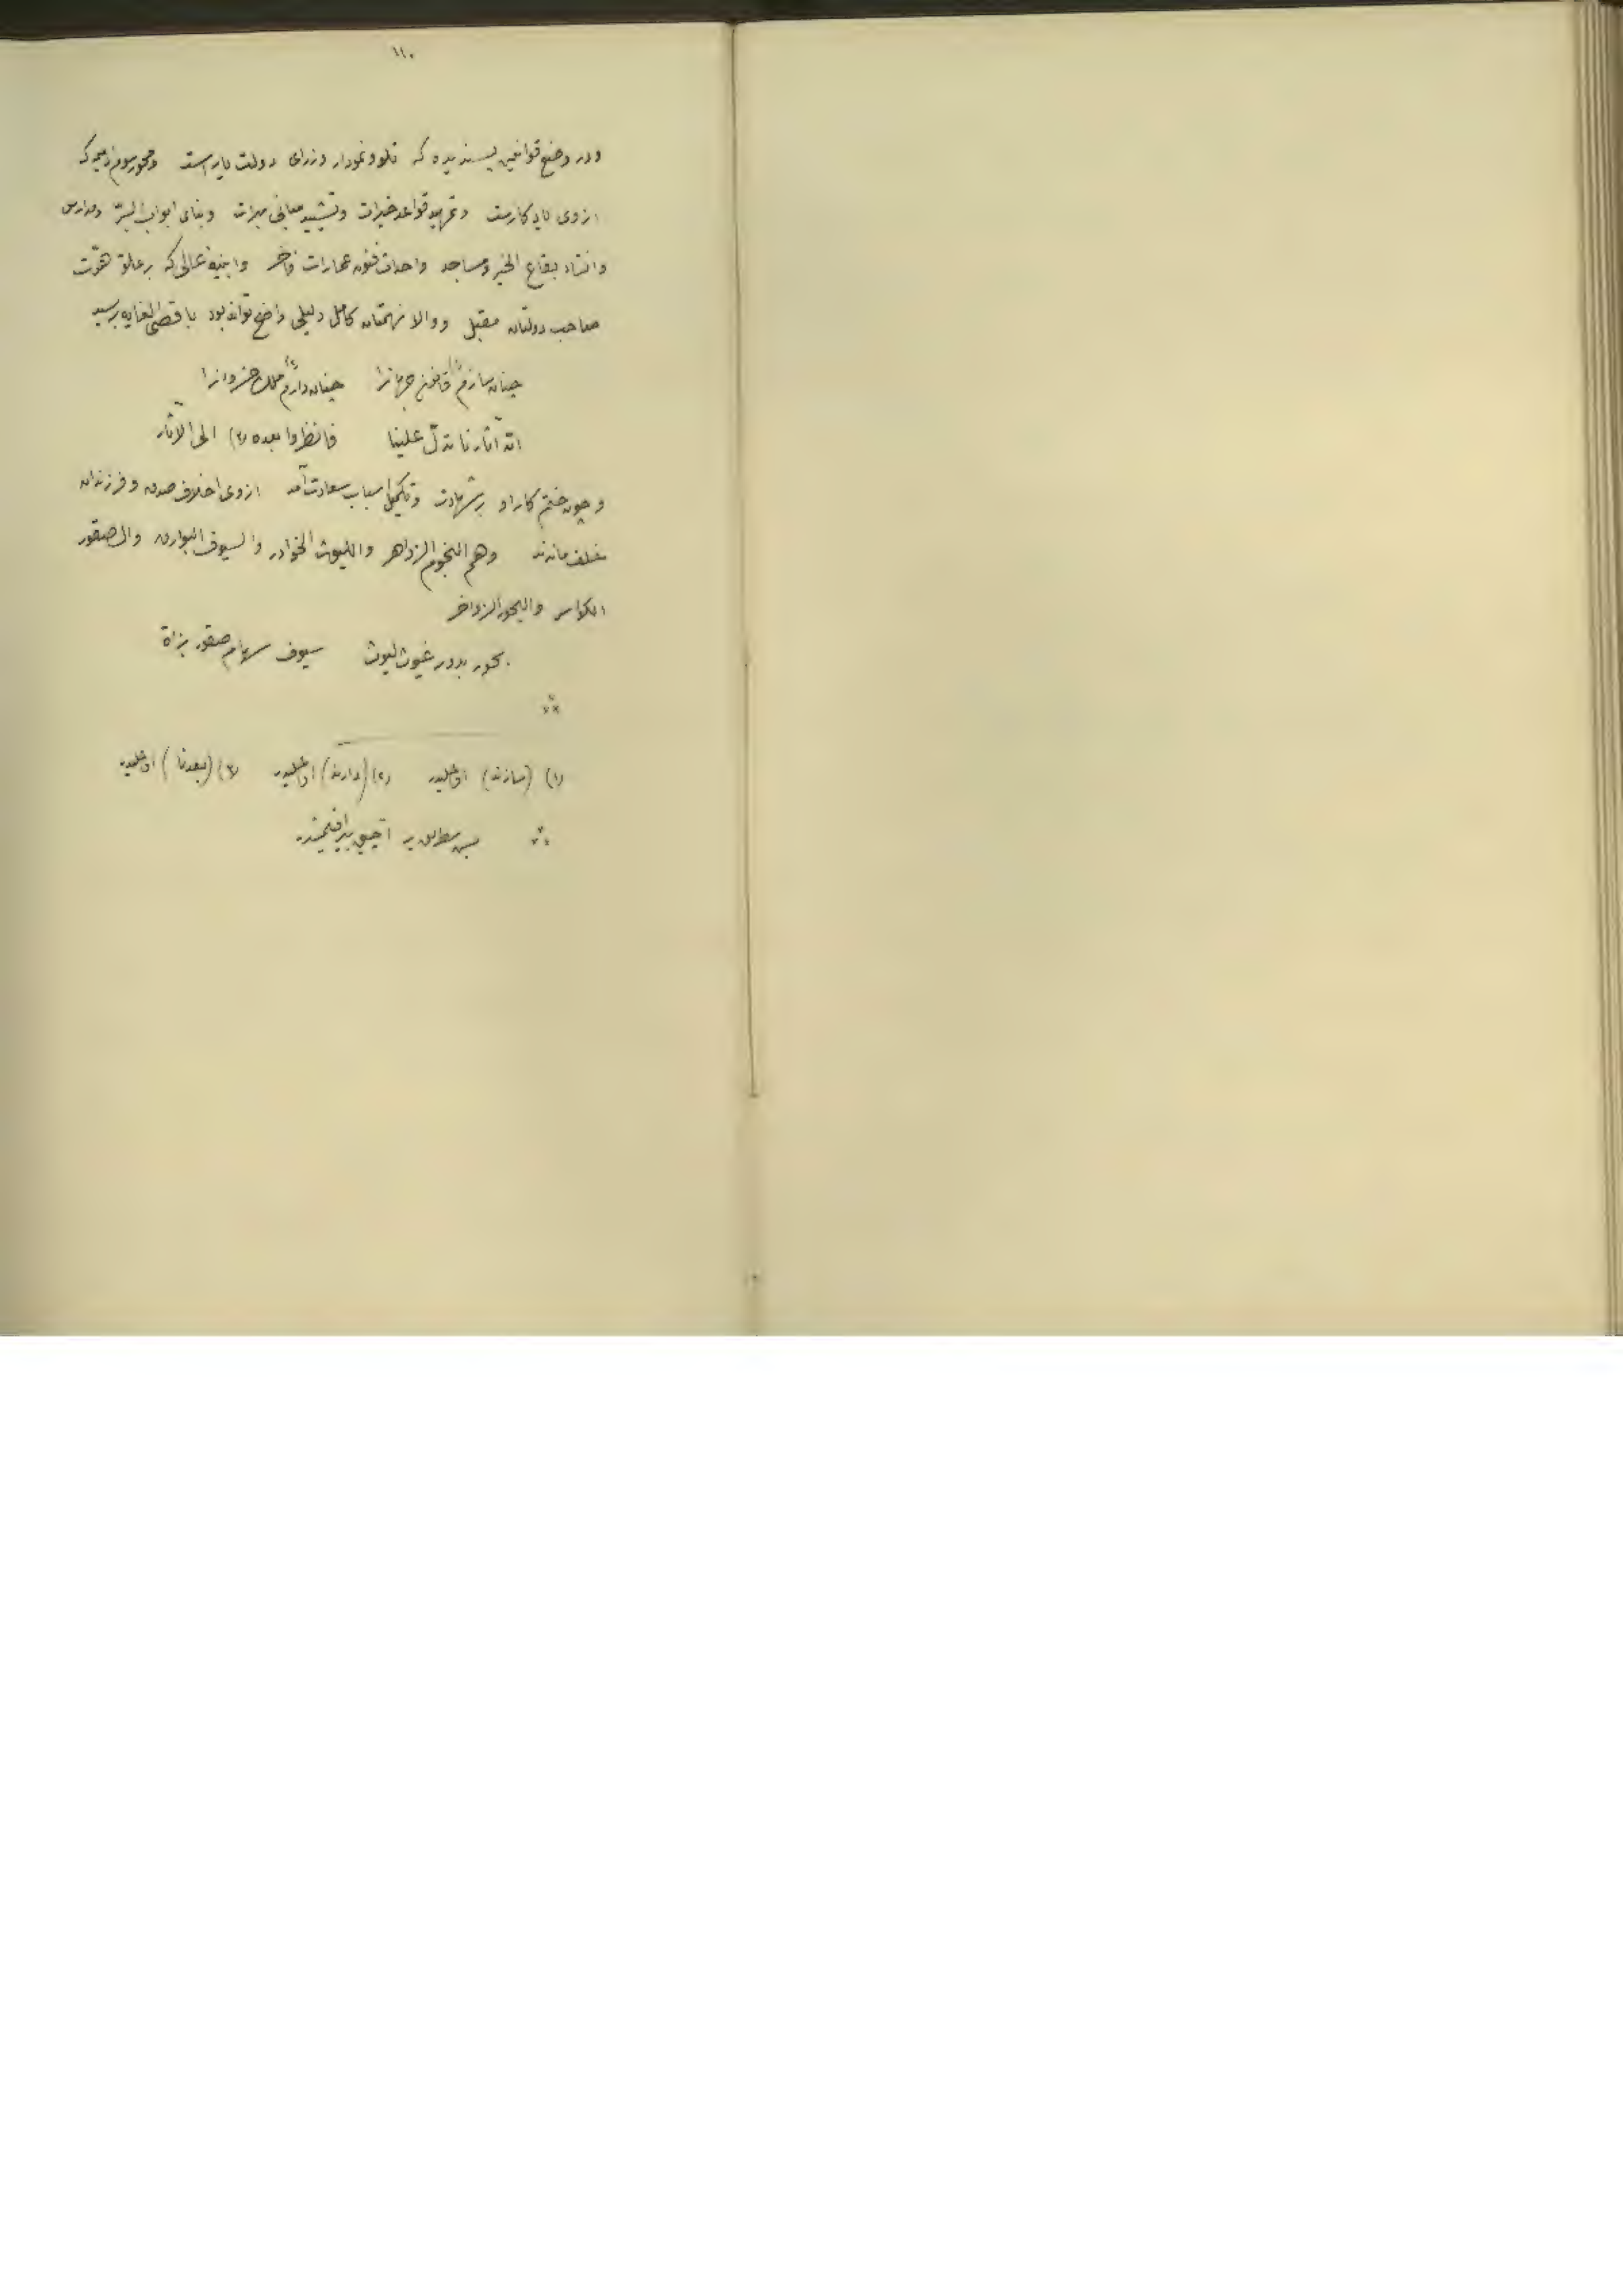 ١١٠
ودر وضع قوانین پسندیده که تلو و نمودار وزرای دولت یارست ومحو رسوم ذمیمه که
ازوی یادکارست وتمهید قواعد خیرات وتشیید مبانی مبرات وبنای ابواب البرّ ومدارس
وانشاء بقاع الخیر ومساجد واحداث فنون عمارات فاخر وابنیهٔ عالی که بر علوّ همّت
صاحب دولتان مقبل ووالا نهمتان کامل دلیلی واضح تواند بود باقصی الغایه برسید
چنان سازم (١) قانون جهانرا چنان دارم (٢) ملک خسروانرا
انّ آثارنا تدلّ علینا فانظروا بعده (٣) الی الآثار
وچون ختم کار او بر شهادت وتکمیل اسباب سعادت آمد ازوی اخلاف صدق وفرزندان
خلف ماندند وهم النجوم الزواهر واللیوث الخوادر والسیوف البواتر والصقور
الکواسر والبحور الزواخر
بحور بدور غیوث لیوث سیوف سهام صقور بزاة
(١) (سازند) اوملیدر (٢) (دارند) اوملیدر (٣) (بعدنا) اوملیدر